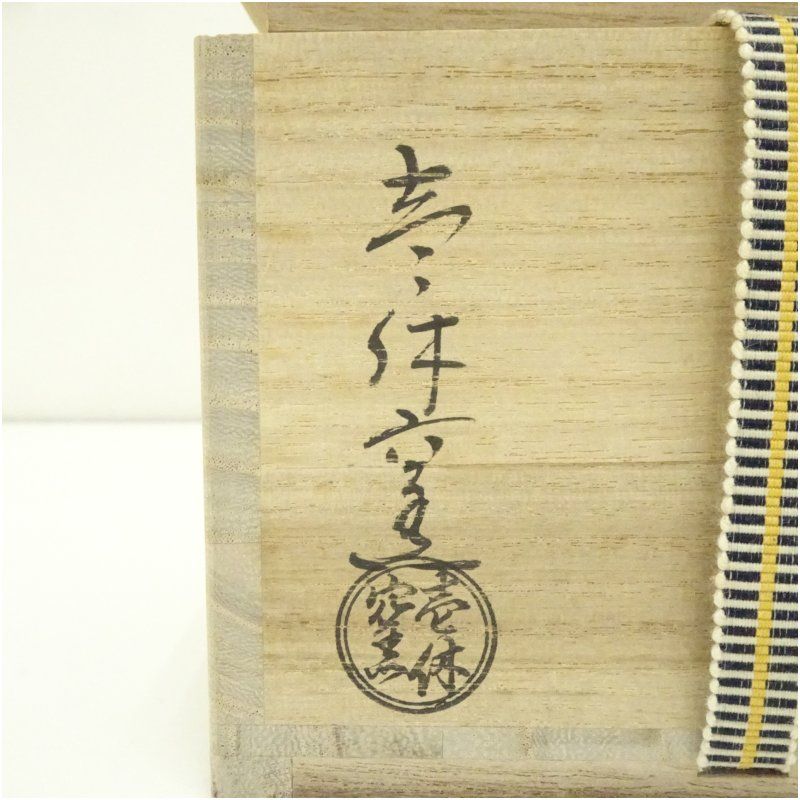 壱休窯
壱休
窯窯